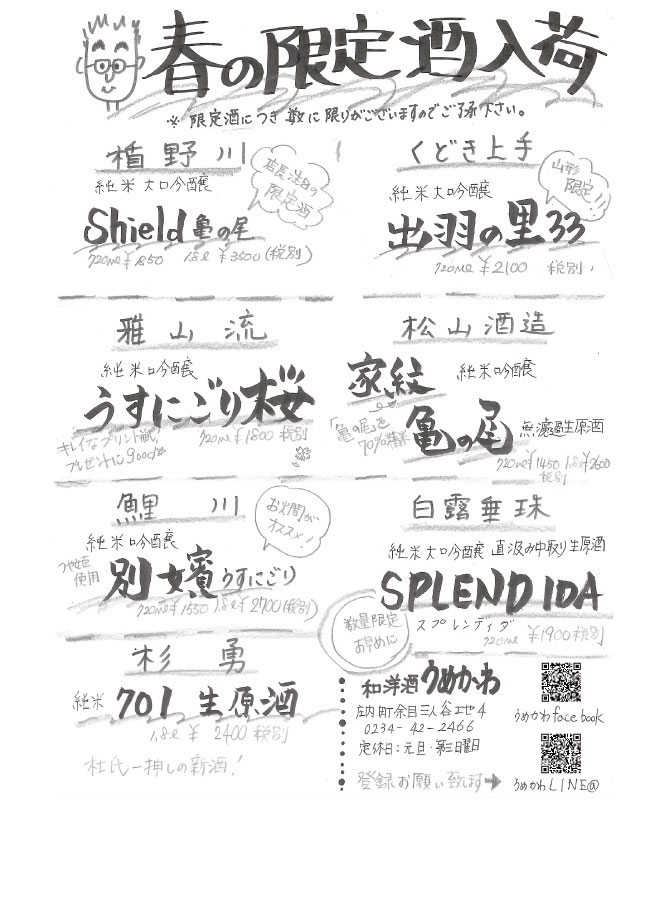 春の限定酒入荷
※限定酒につき数に限りがございますのでご了承下さい。
楯野川
純米大吟醸
店長注目の
限定酒
Shield 亀の尾
720ml ¥1850 1.8ℓ ¥3500(税別)
くどき上手
純米大吟醸
山形
限定!!
出羽の里33
720ml ¥2100 税別
雅山流
純米吟醸
うすにごり桜
720ml ¥1800 税別
キレイなプリント瓶
プレゼントにgood
松山酒造
家紋 純米吟醸
「亀の尾」を
70%精米
亀の尾 無濾過生原酒
720ml ¥1450 1.8ℓ ¥2600
税別
鯉川
純米吟醸
お火間が
オススメ!
つや姫
使用
別嬪うすにごり
720ml ¥1550 1.8ℓ ¥2700(税別)
白露垂珠
純米大吟醸 直汲み中取り生原酒
SPLENDIDA
スプレンディダ
720ml ¥1900 税別
数量限定
お早めに
杉勇
純米 701 生原酒
1.8ℓ ¥2400 税別
杜氏一押しの新酒!
和洋酒うめかわ
庄内町余目三人谷地54
0234-42-2466
定休日:元旦・第三日曜日
登録お願い致します➡
うめかわfacebook
うめかわLINE@